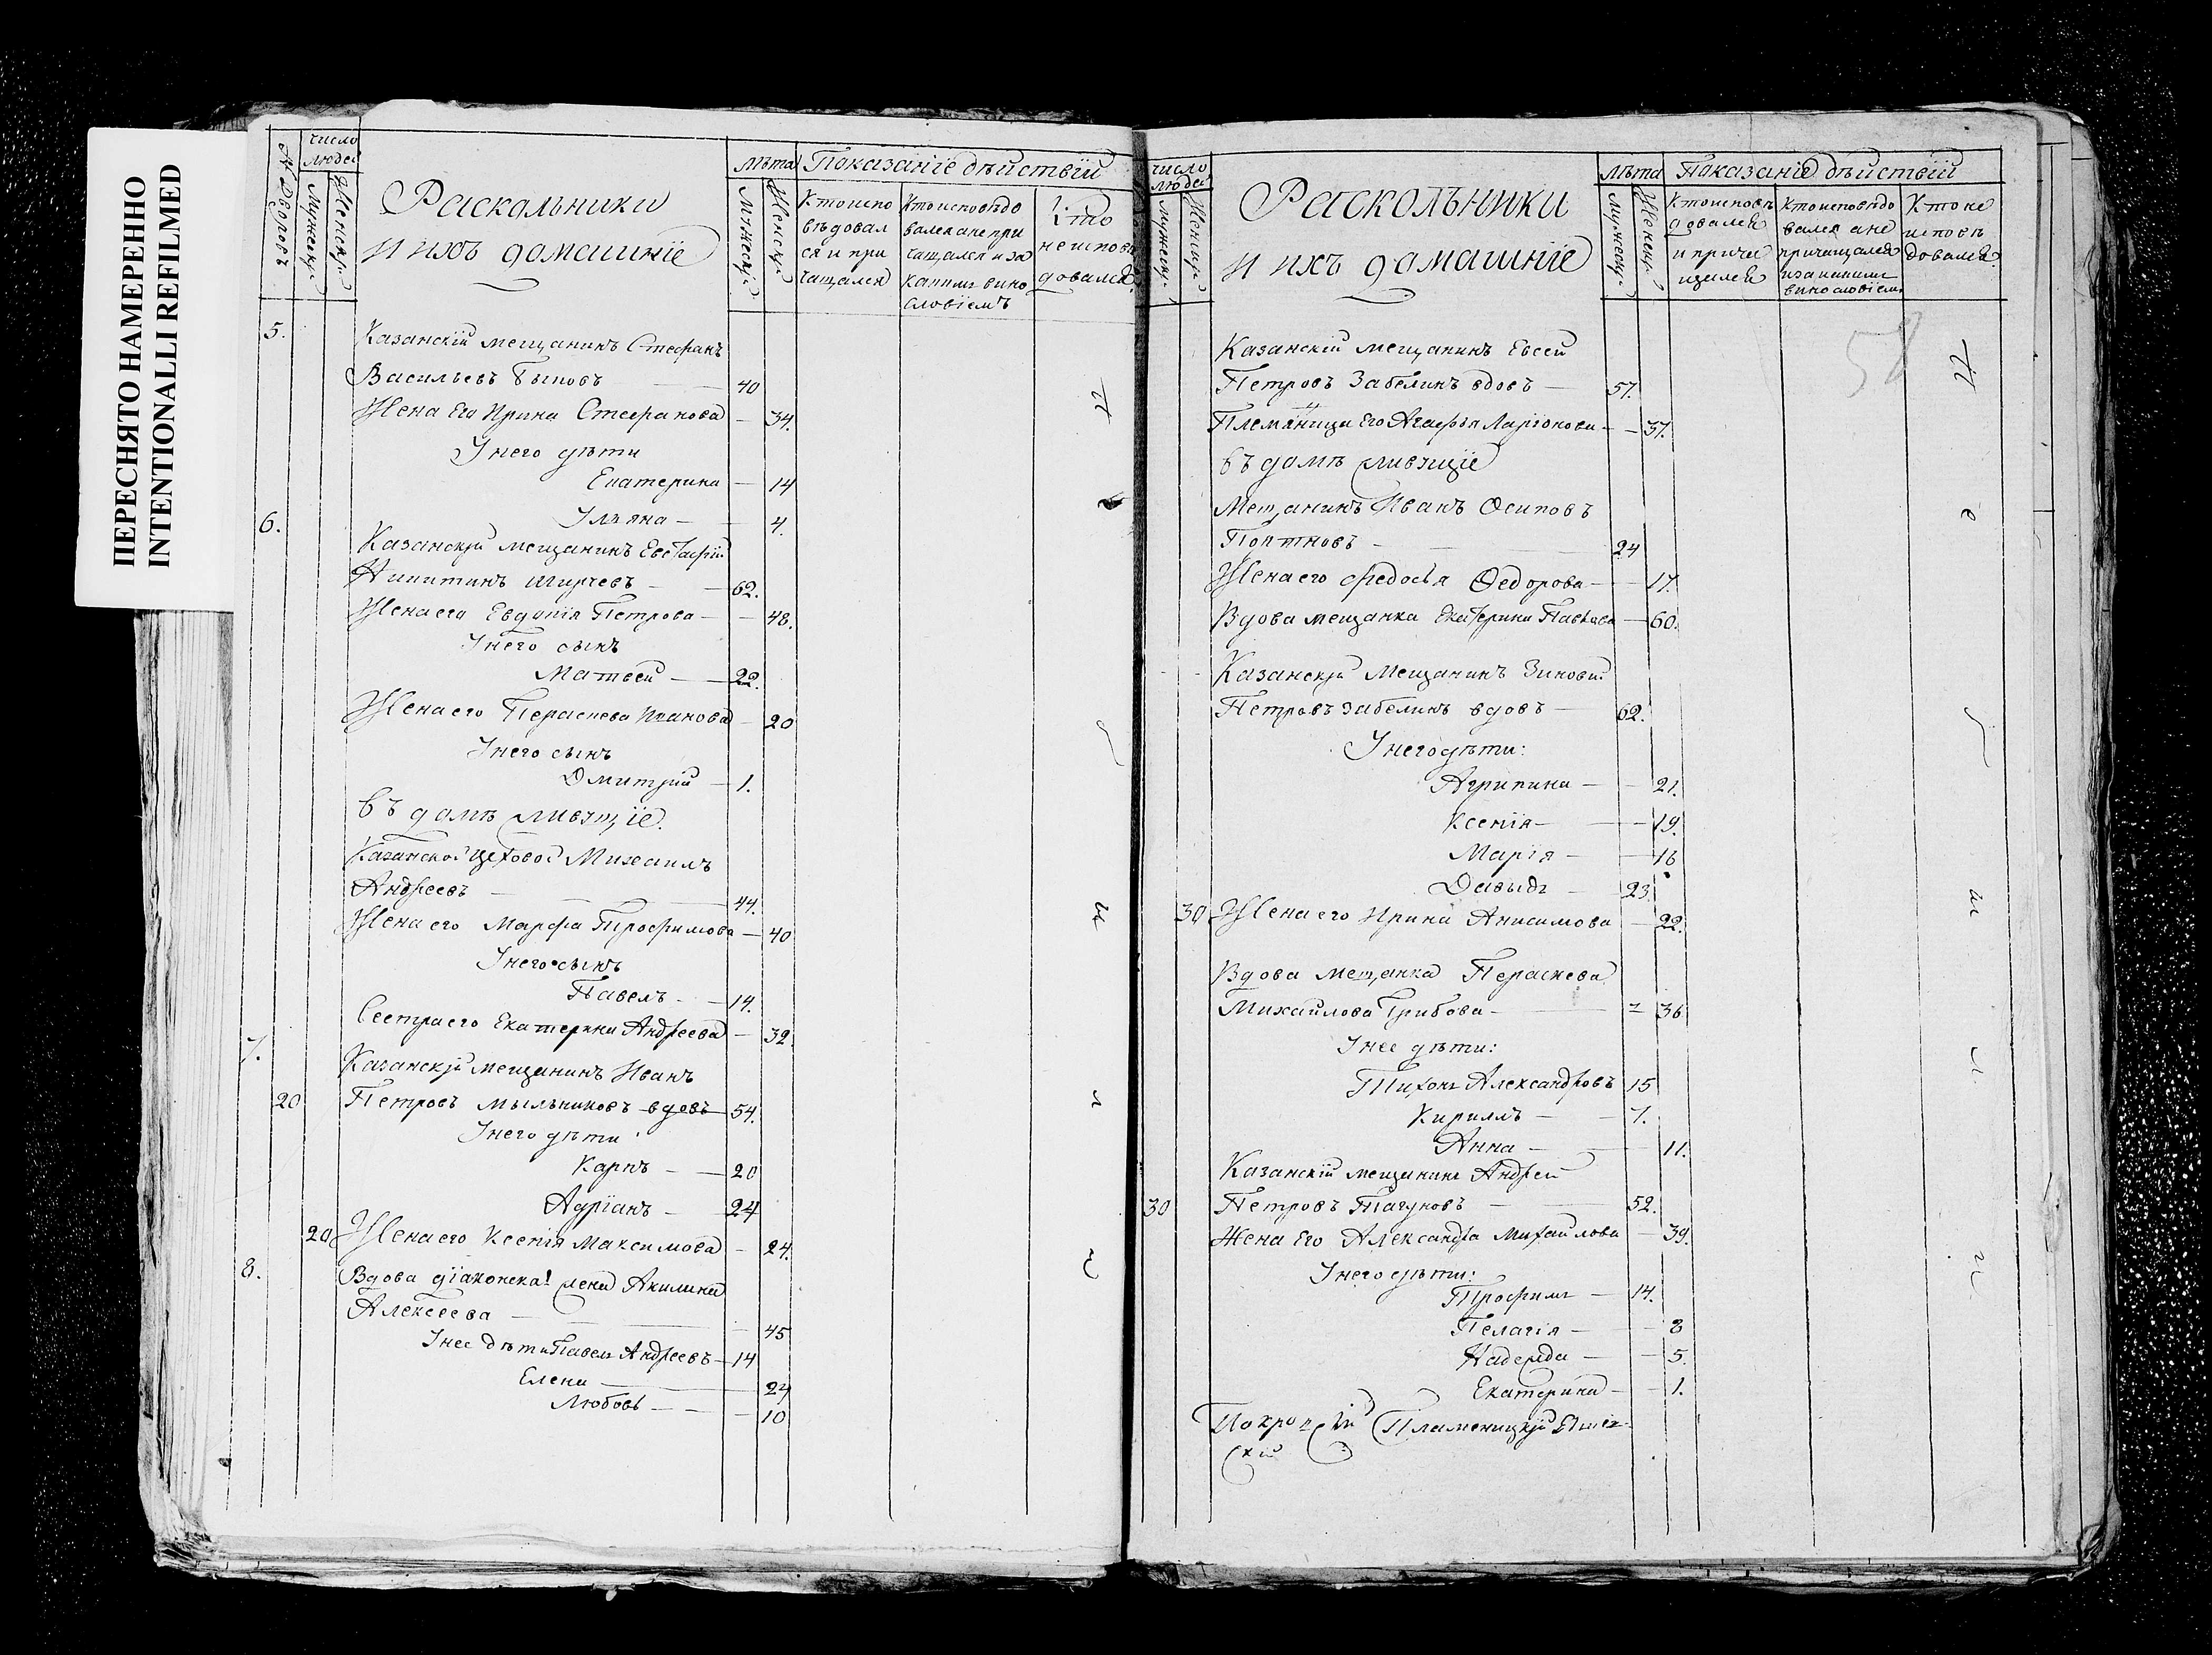 ПЕРЕСНЯТО НАМЕРЕННО
INTENTIONALLI REFILMED
№ Дворовъ
Число людей
Мужеск.
Женск.
Раскольники
и ихъ домашніе
Лѣта
Мужеск.
Женск.
Показаніе дѣйствій
Кто испо
вѣдовал
ся и при
чащался
Кто исповѣдо
вался а не при
чащался и за
какимъ вино
словіемъ
Кто
не исповѣ
довался
5.
Казанскій мещанинъ Стефанъ
Васильевъ 40
Жена Его Ирина Стефанова 34.
У него дѣти
Екатерина 14
Ульяна 4.
6.
Казанскій мещанинъ Евстафій
Никитинъ 62.
Жена его Евдокія Петрова 48.
У него сынъ
Матвей 22.
Жена его Параскева Иванова 20
У него сынъ
Дмитрий 1.
Въ домѣ живущіе.
Казанской цеховой Михаилъ
Андреевъ 44.
Жена его Марфа Трофимова 40
У него сынъ
Павелъ 14.
Сестра его Екатерина Андреева 32
7.
Казанскій мещанинъ Иванъ
20 Петровъ Мыльниковъ вдовъ 54.
У него дѣти
Карпъ 20
Адріанъ 24
20 Жена его Ксенія Максимова 24.
8.
Вдова діаконска! жена Акилина
Алексеева 45
У нее дѣти Павелъ Андреевъ 14
Елена 24
Любовь 10
Число людей
Мужеск.
Женск.
Раскольники
и ихъ домашніе
Лѣта
Мужеск.
Женск.
Показаніе дѣйствій
Кто исповѣ
довался
и прича
щался
Кто исповѣдо
вался а не
причащался
и за какимъ
винословіем
Кто не
исповѣ
довался.
58
Казанскій мещанинъ Евсей
Петровъ Забелинъ вдовъ 57.
Племяница Его Агафья Ларіонова 37.
Въ домѣ живущіе
Мещанинъ Иванъ Осиповъ
Портновъ 24
Жена его Федосья Федорова 17.
Вдова мещанка Екатерина Павлова 60.
Казанскій Мещанинъ Зиновій
Петровъ Забелинъ вдовъ 62.
У него дѣти:
Агрипина 21.
Ксенія 19.
Марія 16
Давыдъ 23
30 Жена его Ирина Анисимова 22.
Вдова мещанка Параскева
Михайлова Грибова 36
У нее дѣти:
Тихонъ Александровъ 15
Кириллъ 7.
Анна 11.
Казанскій мещанинъ Андрей
30 Петровъ 52.
Жена Его Александра Михайлова 39.
У него дѣти:
Трофимъ 14.
Пелагія 8
Надежда 5.
Екатерина 1.